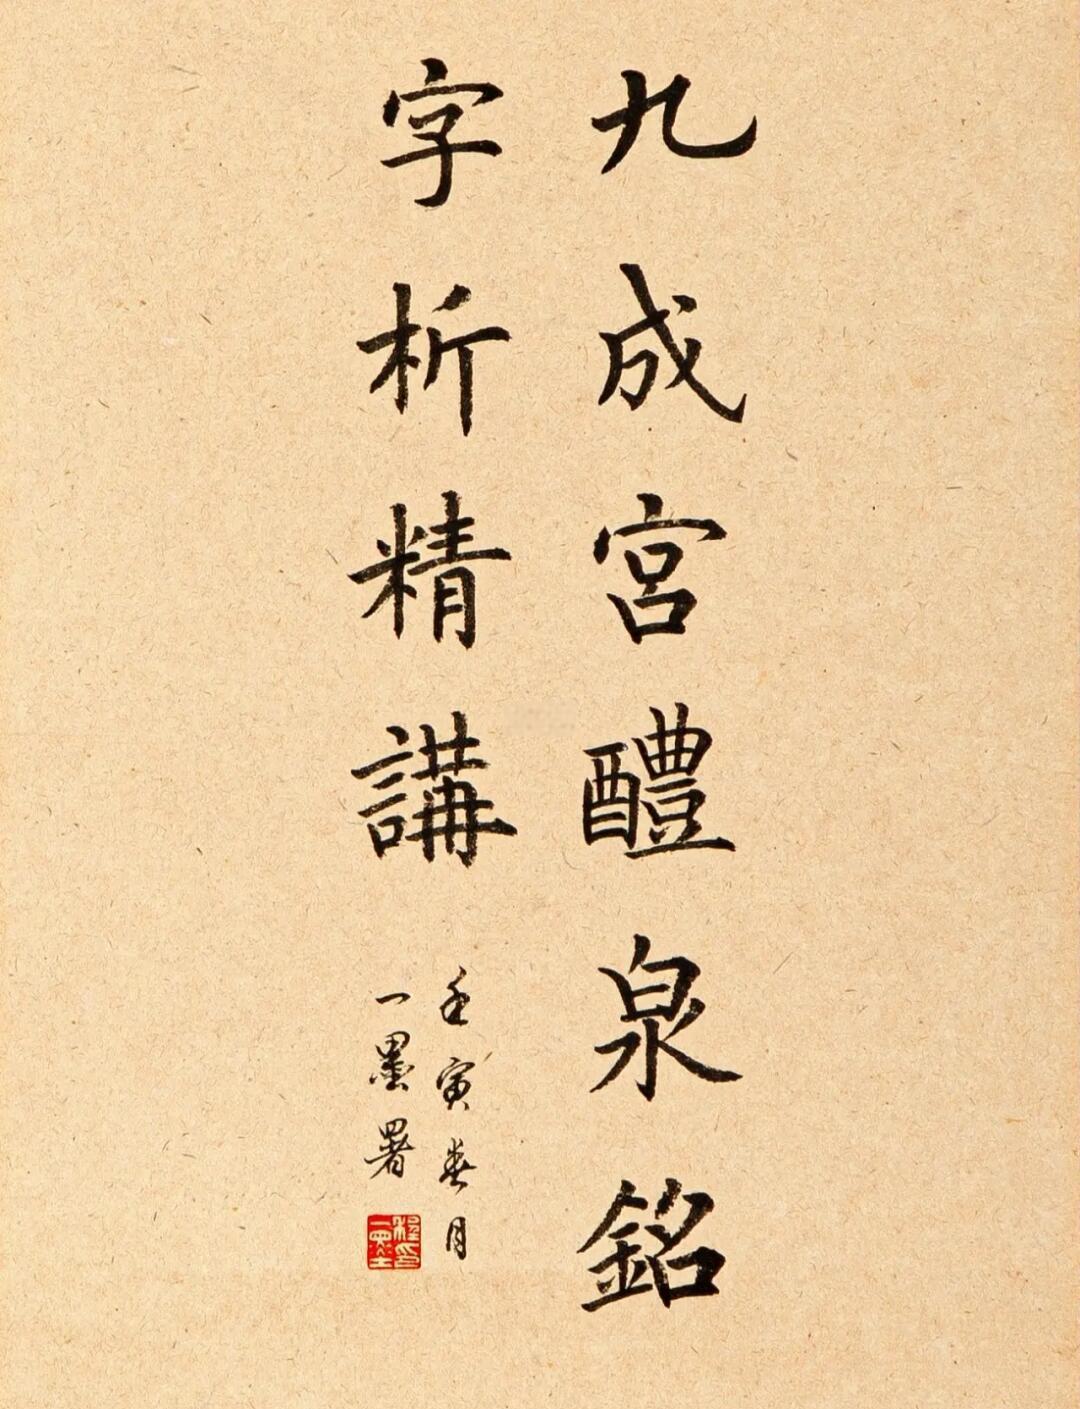 九成宮醴泉銘
字析精講
壬寅春月
一墨署
程一墨印